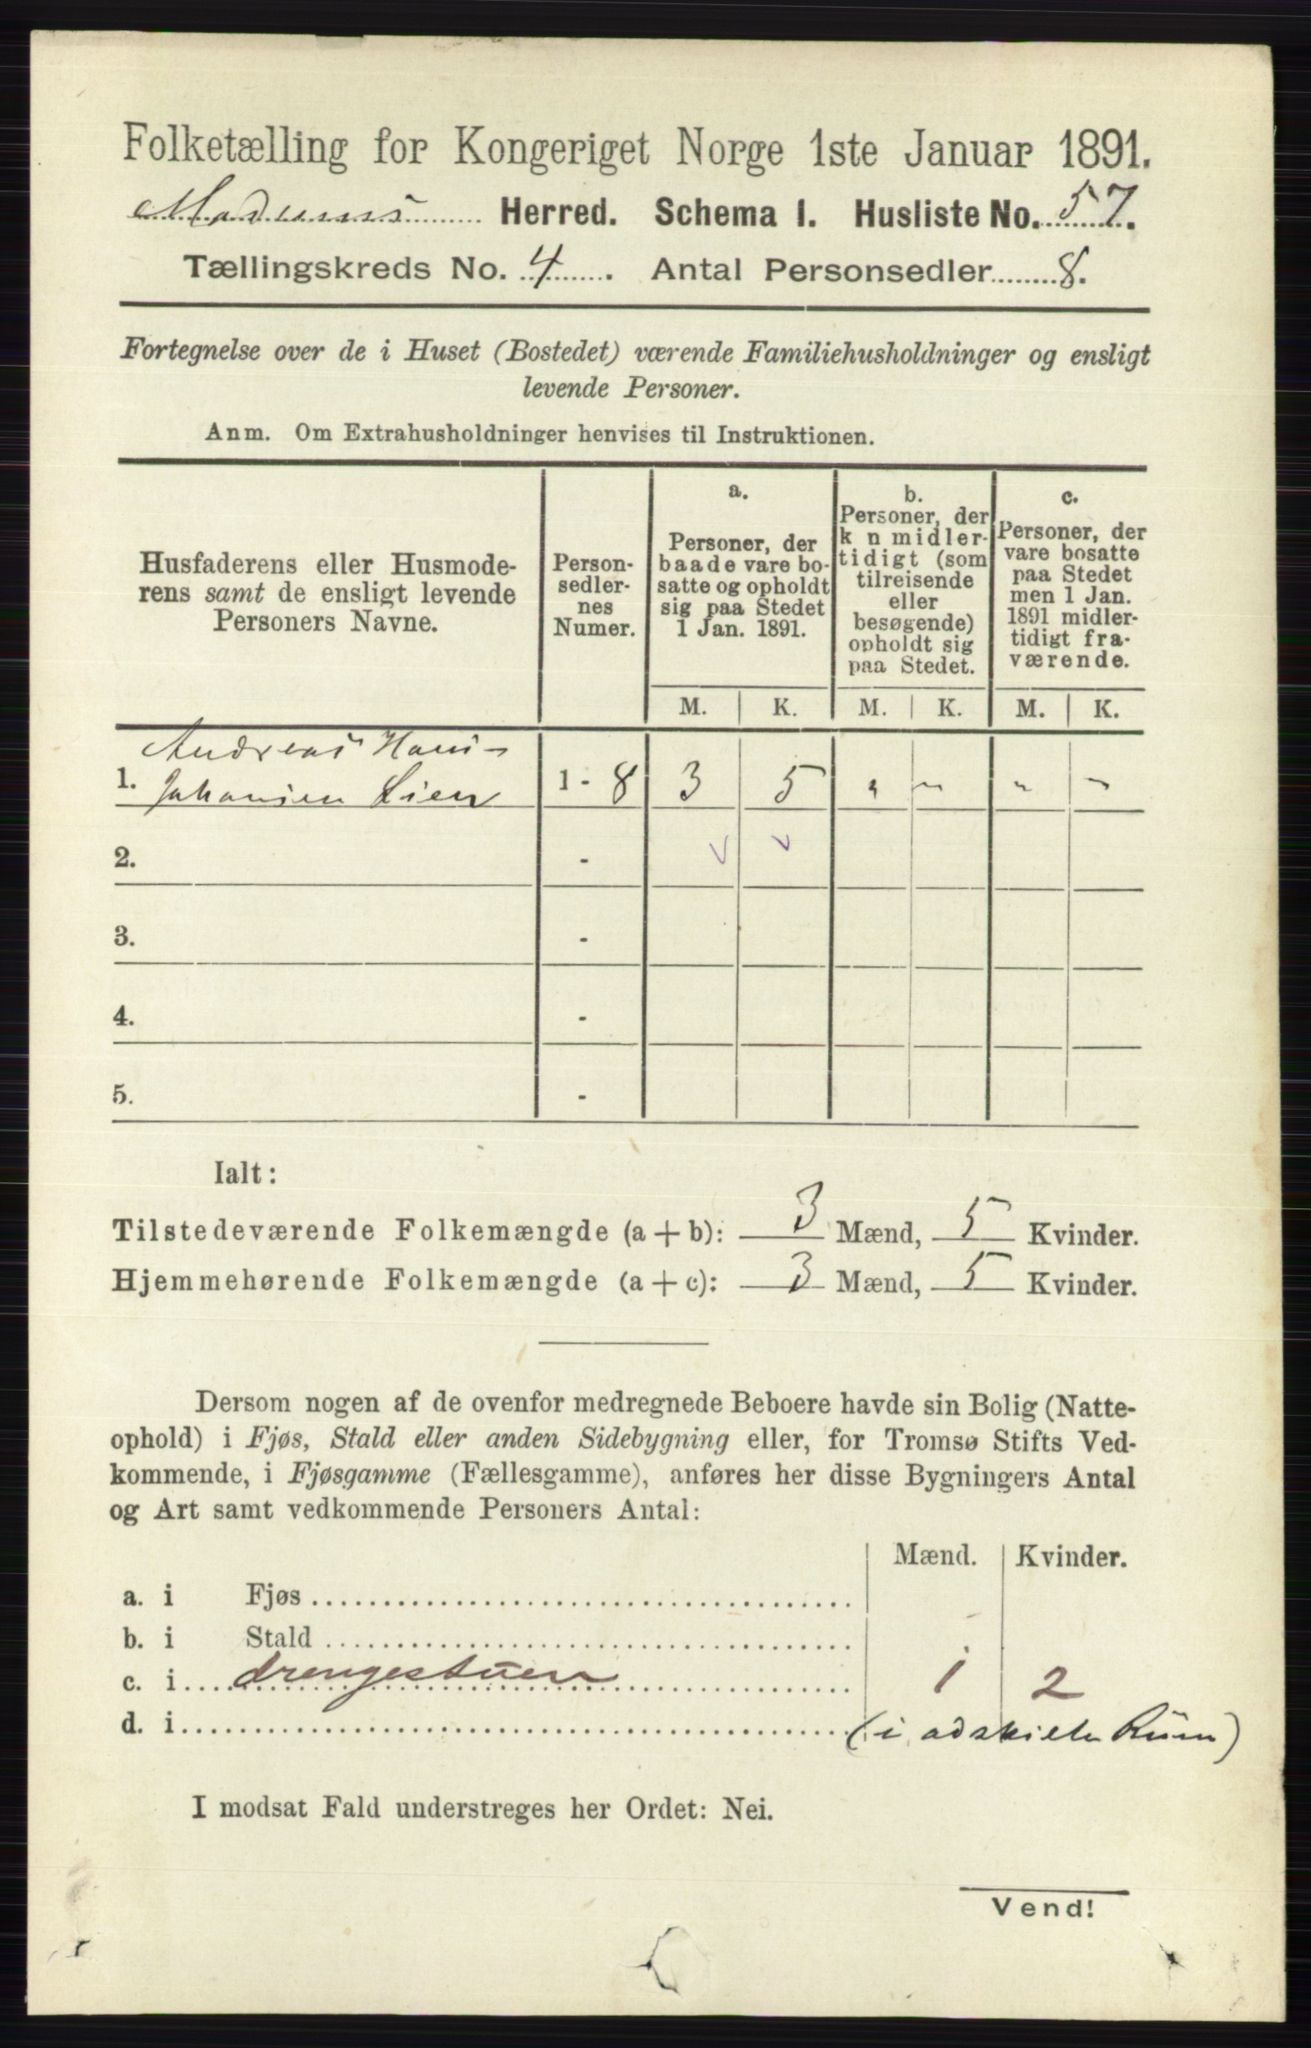 Folketælling for Kongeriget Norge 1ste Januar 1891.
Modums Herred. Schema I. Husliste No. 57.
Tællingskreds No. 4. Antal Personsedler 8.
Fortegnelse over de i Huset (Bostedet) værende Familiehusholdninger og ensligt
levende Personer.
Anm. Om Extrahusholdninger henvises til Instruktionen.
Husfaderens eller Husmode-
rens samt de ensligt levende
Personers Navne.
Person-
sedler-
nes
Numer.
a.
Personer, der
baade vare bo-
satte og opholdt
sig paa Stedet
1 Jan. 1891.
b.
Personer, der
k n midler-
tidigt (som
tilreisende
eller
besøgende)
opholdt sig
paa Stedet.
c.
Personer, der
vare bosatte
paa Stedet
men 1 Jan.
1891 midler-
tidigt fra-
værende.
M. K. M. K. M. K.
Andreas Hans
1. Johansen Lien 1 - 8 3 5 " " " "
2. -
3. -
4. -
5. -
Ialt:
Tilstedeværende Folkemængde (a + b): 3 Mænd, 5 Kvinder.
Hjemmehørende Folkemængde (a + c): 3 Mænd, 5 Kvinder.
Dersom nogen af de ovenfor medregnede Beboere havde sin Bolig (Natte-
ophold) i Fjøs, Stald eller anden Sidebygning eller, for Tromsø Stifts Ved-
kommende, i Fjøsgamme (Fællesgamme), anføres her disse Bygningers Antal
og Art samt vedkommende Personers Antal:
Mænd. Kvinder.
a. i Fjøs
b. i Stald
c. i drengestuen 1 2
d. i (i adskilte Rum)
I modsat Fald understreges her Ordet: Nei.
Vend!